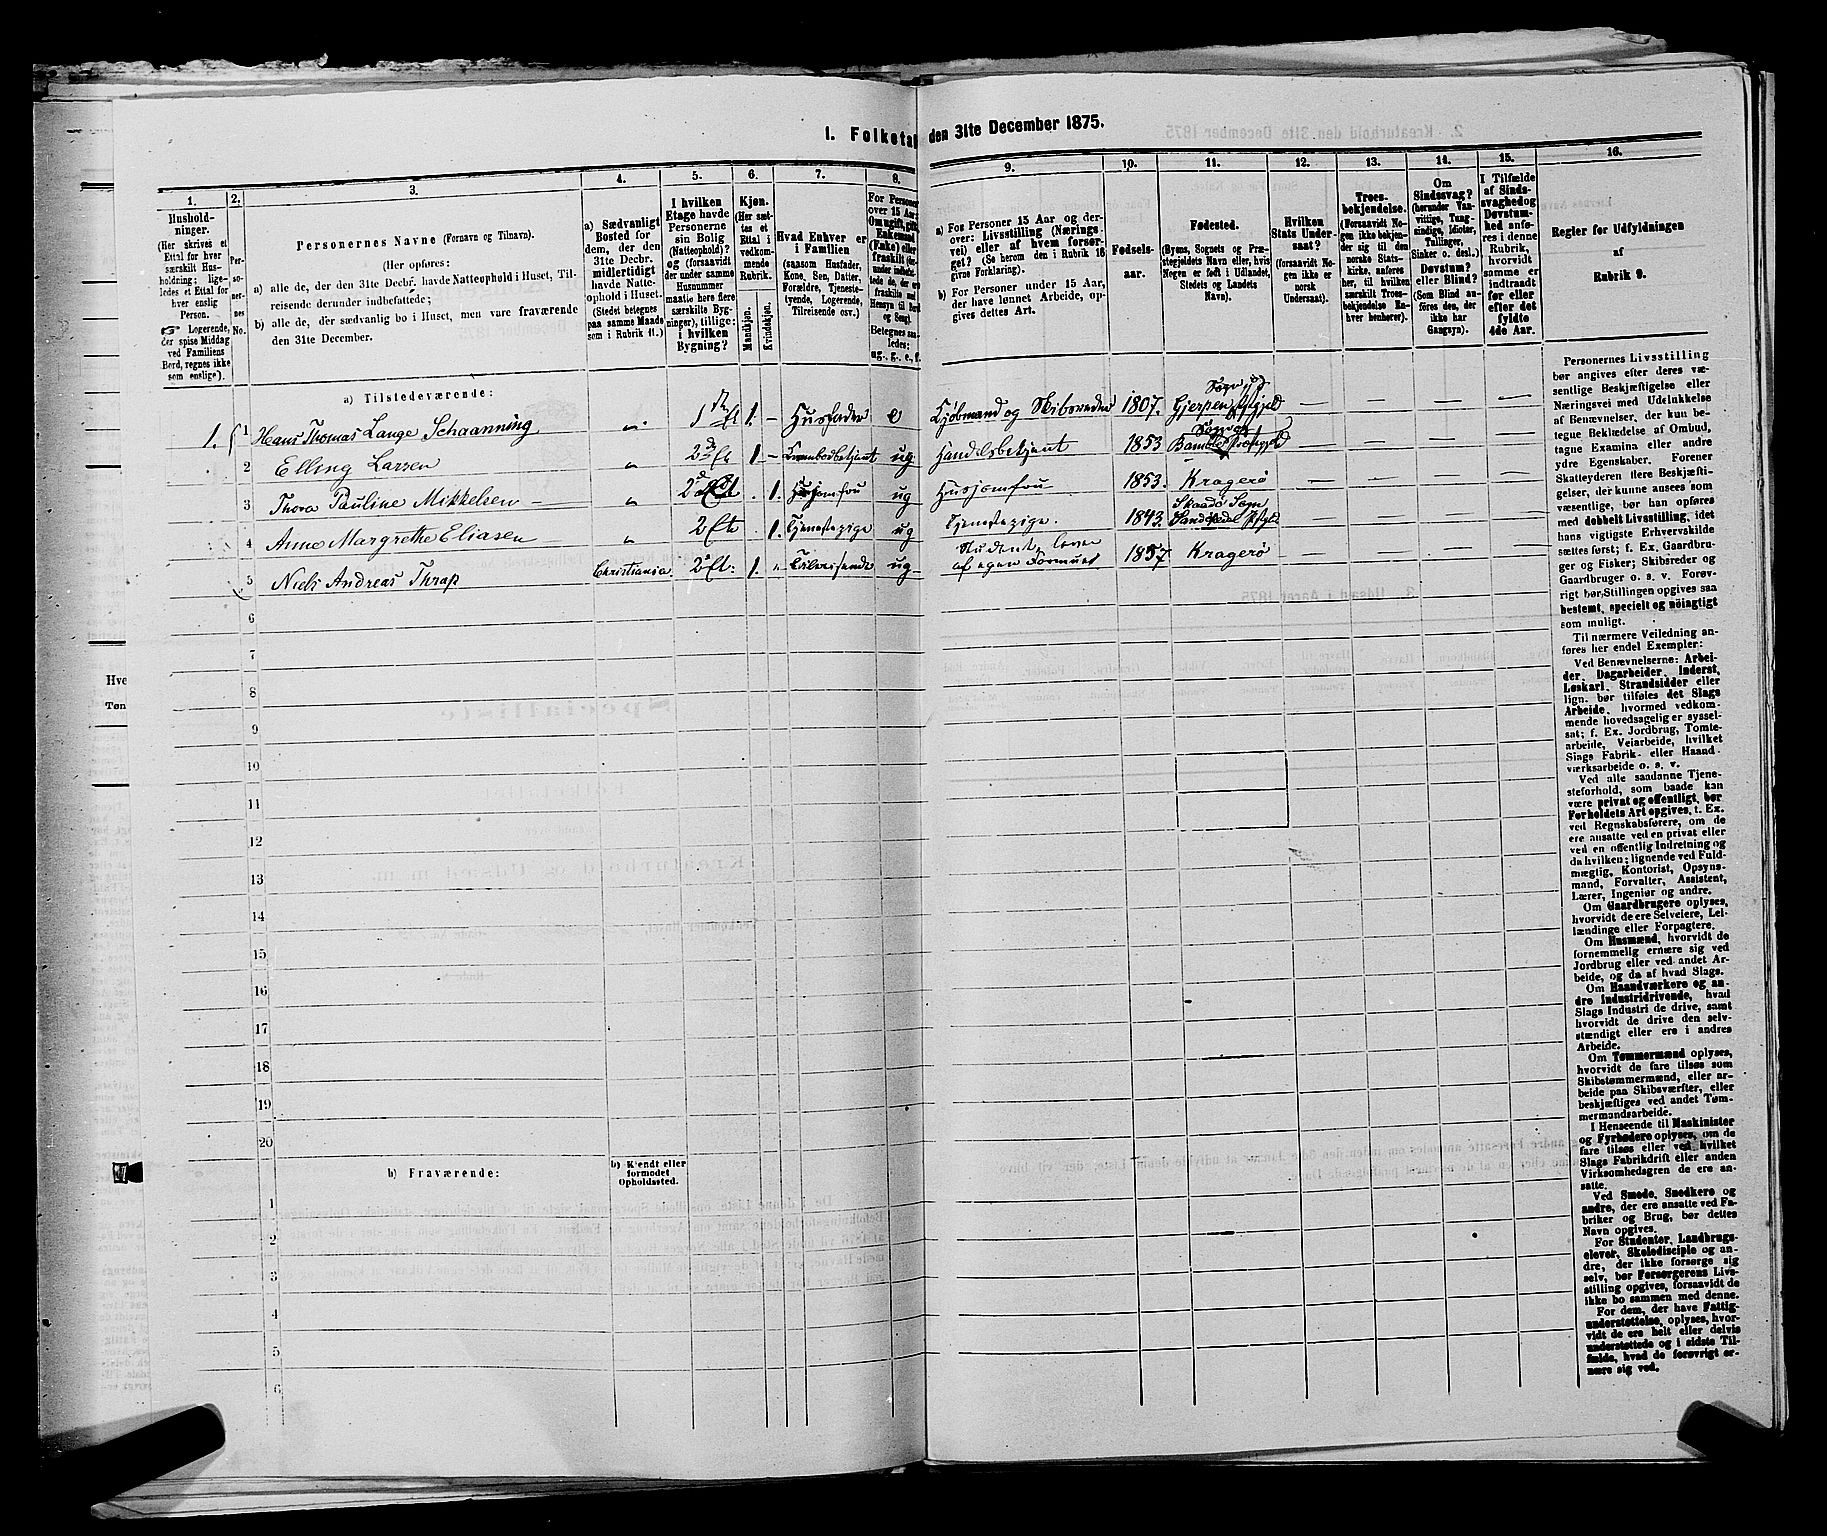 I. Folketal den 31te December 1875.
1.
2.
3.
4.
5.
6.
7.
8.
9.
10.
11.
12.
13.
14.
15.
16.
Hushold-
ninger.
(Her skrives et
Ettal for hver
særskilt Hus-
holdning; lige-
ledes et Ettal for
hver enslig
Person.
☞ Logerende,
der spise Middag
ved Familiens
Bord, regnes ikke
som enslige).
Per-
so-
ner-
nes
No.
Personernes Navne (Fornavn og Tilnavn).
(Her opføres:
a) alle de, der den 31te Decbr. havde Natteophold i Huset, Til-
reisende derunder indbefattede;
b) alle de, der sædvanlig bo i Huset, men vare fraværende
den 31te December.
a) Sædvanligt
Bosted for
dem, der den
31te Decbr.
midlertidigt
havde Natte-
ophold i Huset.
(Stedet betegnes
paa samme Maade
som i Rubrik 11.)
I hvilken
Etage havde
Personerne
sin Bolig
(Natteophold)?
og (forsaavidt
der under samme
Husnummer
maatte høre flere
særskilte Byg-
ninger), tillige:
i hvilken
Bygning?
Kjøn.
(Her sæt-
tes et
Ettal i
vedkom-
mende
Rubrik.
Mandkjøn.
Kvindekjøn.
Hvad Enhver er
i Familien
(saasom Husfader,
Kone, Søn, Datter,
Forældre, Tjeneste-
tyende, Logerende,
Tilreisende osv.)
For Personer
over 15 Aar:
Om ugift, gift,
Enkemand
(Enke) eller
fraskilt
Betegnes saa-
ledes:
ug., g., e., f.
a) For Personer 15 Aar og der-
over: Livsstilling (Nærings-
vei) eller af hvem forsør-
get? (Se herom den i Rubrik 16
givne Forklaring).
b) For Personer under 15 Aar,
der have lønnet Arbeide, op-
gives dettes Art.
Fødsels-
aar.
Fødested.
(Byens, Sognets og Præ-
stegjeldets Navn eller, hvis
Nogen er født i Udlandet,
Stedets og Landets
Navn).
Hvilken
Stats Under-
saat?
(forsaavidt No-
gen ikke er
norsk
Undersaat).
Troes-
bekjendelse.
(Forsaavidt No-
gen ikke bekjen-
der sig til den
norske Stats-
kirke, anføres
her, til hvilken
særskilt Troes-
bekjendelse En-
hver henhører).
Om
Sindssvag?
(herunder Van-
vittige, Tung-
sindige, Idioter,
Tullinger,
Sinker o. desl.)
Døvstum?
eller Blind?
(Som Blind an-
føres den, der
ikke har
Gangsyn).
I Tilfælde
af Sinds-
svaghed og
Døvstum-
hed anfø-
res i denne
Rubrik,
hvorvidt
samme er
indtraadt
før eller
efter det
fyldte
4de Aar.
Regler for Udfyldningen
af
Rubrik 9.
a) Tilstedeværende:
1. 1 Hans Thomas Lange Schaanning „ 1 Et 1. – Husfader e Kjøbmand og Skibsreder 1807. Gjerpen Sogn og Pgjeld — — — —
2 Elling Larsen „ 2 Et 1 – Krambodbetjent ug Handelsbetjent 1853 Bamble Sogn og Præstegjeld — — — —
3 Thora Pauline Mikkelsen – „ 2 Et . 1. Husjomfru ug Husjomfru 1853. Kragerø — — — —
4 Anne Margrethe Eliasen „ 2 Et . 1. Tjenestepige ug Tjenestepige. 1843. Skaadø Sogn Sandøkedal Pgjeld — — — —
5 Niels Andreas Thrap Christiania 2 Et: 1. „ Tilreisende ug Student, lever af egen Formue 1857. Kragerø — — — —
6
7
8
9
10
11
12
13
14
15
16
17
18
19
20
b) Fraværende:
b) Kjendt eller
formodet
Opholdssted.
1
2
3
4
5
6
Personernes Livsstilling
bør angives efter deres væ-
sentlige Beskjæftigelse eller
Næringsvei med Udelukkelse
af Benævnelser, der kun be-
tegne Beklædelse af Ombud,
tagne Examina eller andre
ydre Egenskaber. Forener
Skatteyderen flere Beskjæfti-
gelser, der kunne ansees som
væsentlige, bør han opføres
med dobbelt Livsstilling, idet
hans vigtigste Erhvervskilde
sættes først; f. Ex. Gaardbru-
ger og Fisker; Skibsreder og
Gaardbruger o. s. v. Forøv-
rigt bør Stillingen opgives saa
bestemt, specielt og nøiagtigt
som muligt.
Til nærmere Veiledning an-
føres her endel Exempler:
Ved Benævnelserne: Arbei-
der, Dagarbeider, Inderst,
Løskarl, Strandsidder eller
lign. bør tilføies det Slags
Arbeide, hvormed vedkom-
mende hovedsagelig er syssel-
sat; f. Ex. Jordbrug, Tomte-
arbeide, Veiarbeide, hvilket
Slags Fabrik- eller Haand-
værksarbeide o. s. v.
Ved alle saadanne Tjene-
steforhold, som baade kan
være privat og offentligt, bør
Forholdets Art opgives, t. Ex.
ved Regnskabsførere, om de
ere ansatte ved en privat eller
ved en offentlig Indretning og
da hvilken; lignende ved Fuld-
mægtig, Kontorist, Opsyns-
mand, Forvalter, Assistent,
Lærer, Ingeniør og andre.
Om Gaardbrugere oplyses,
hvorvidt de ere Selveiere, Lei-
lændinge eller Forpagtere.
Om Husmænd, hvorvidt de
fornemmelig ernære sig ved
Jordbrug eller ved andet Ar-
beide, og da af hvad Slags.
Om Haandværkere og an-
dre Industridrivende, hvad
Slags Industri de drive, samt
hvorvidt de drive den selv-
stændigt eller ere i andres
Arbeide.
Om Tømmermænd oplyses,
hvorvidt de fare tilsøs som
Skibstømmermænd, eller ar-
beide paa Skibsværfter, eller
beskjæftiges ved andet Tøm-
mermandsarbeide.
I Henseende til Maskinister
og Fyrbødere oplyses, om de
fare tilsøs eller ved hvilket
Slags Fabrikdrift eller anden
Virksomhedsgren de ere an-
satte.
Ved Smede, Snedkere og
andre, der ere ansatte ved Fa-
briker og Brug, bør dettes
Navn opgives.
For Studenter, Landbrugs-
elever, Skoledisciple og an-
dre, der ikke forsørge sig
selv, bør Forsørgerens Livs-
stilling opgives, forsaavidt de
ikke bo sammen med denne.
For dem, der have Fattig-
understøttelse, oplyses, hvor-
vidt de ere helt eller delvis
understøttede og i sidste Til-
fælde, hvad de forøvrigt er-
nære sig ved.
Hve
Tøn